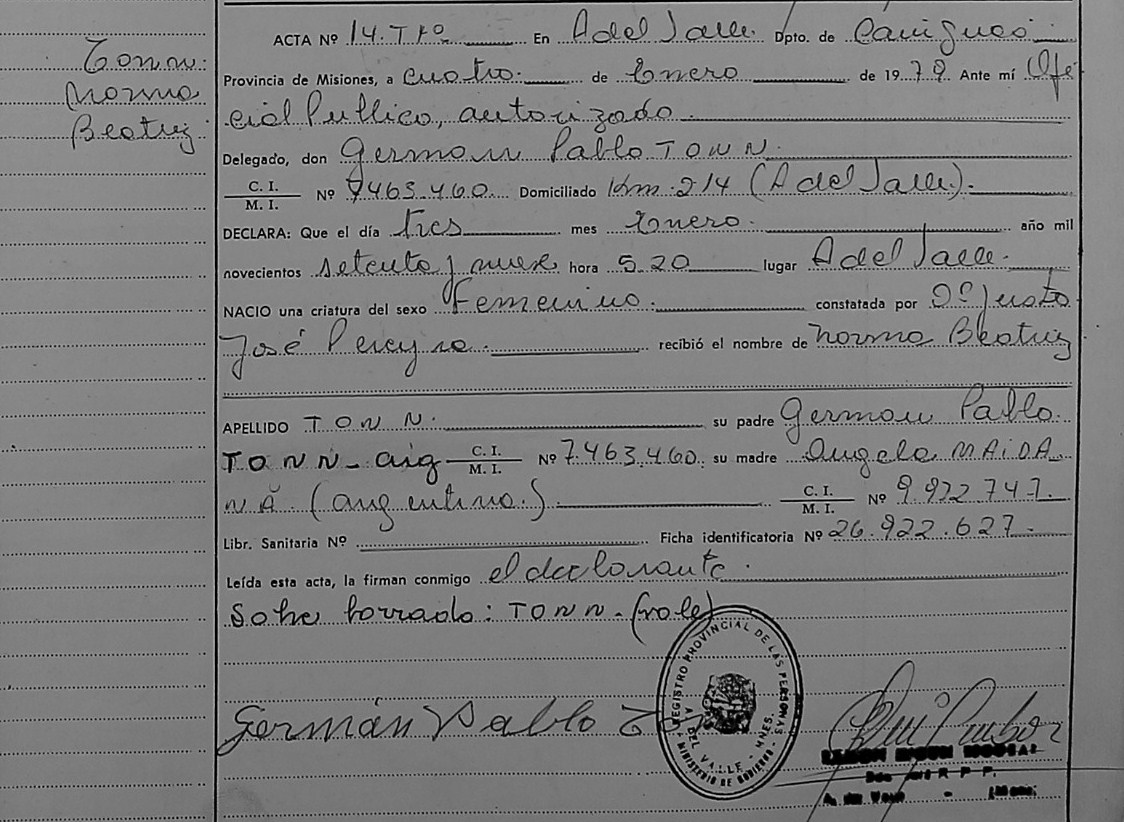 Tonn
Norma
Beatriz
ACTA Nº 14. Tº En A del Valle. Dpto. de Cainguás
Provincia de Misiones, a cuatro. de Enero de 1979 Ante mí Ofi
cial Publico, autorizado.
Delegado, don German Pablo TONN.
C. I. / M. I. Nº 7463.460. Domiciliado Km 214 (A del Valle).
DECLARA: Que el día tres mes Enero. año mil
novecientos setenta y nueve hora 5.20 lugar A del Valle.
NACIO una criatura del sexo Femenino. constatada por Justo
José Pereyra. recibió el nombre de Norma Beatriz
APELLIDO TONN. su padre German Pablo
TONN - arg C. I. / M. I. Nº 7.463.460. su madre Angela MAIDA
NA. (argentina.) C. I. / M. I. Nº 9.922.747.
Libr. Sanitaria Nº Ficha identificatoria Nº 26.922.627.
Leída esta acta, la firman conmigo el declarante.
Sobre borrado: TONN - (vale)
REGISTRO PROVINCIAL DE LAS PERSONAS
A. DEL VALLE - MNES.
MINISTERIO DE GOBIERNO
Germán Pablo
R. P. P.